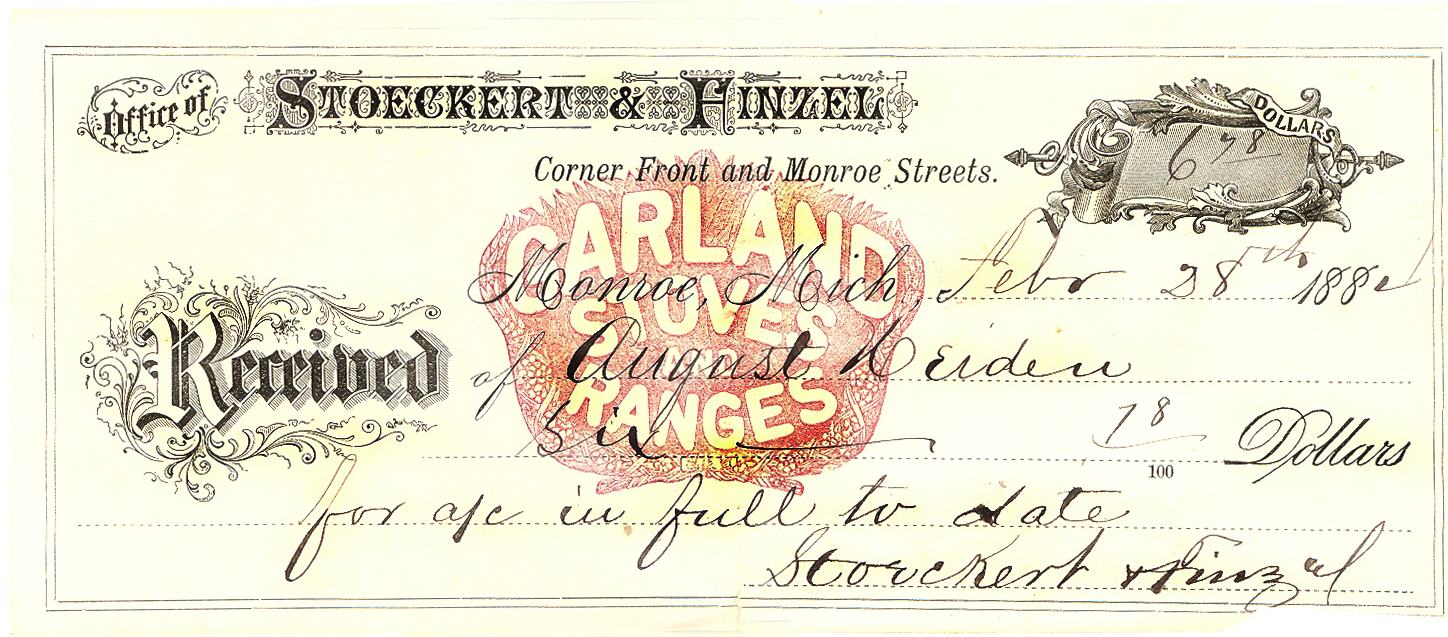 Office of STOECKERT & FINZEL
DOLLARS
6 78
Corner Front and Monroe Streets.
GARLAND
STOVES
AND
RANGES
Monroe, Mich., Febr 28th 188
Received of August Heiden
Six 78/100 Dollars
for a/c in full to date
Stoeckert & Finzel